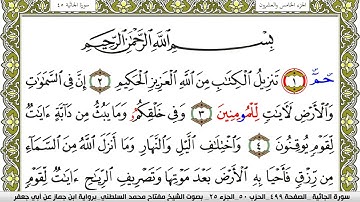 الجزء الخامس والعشرون
سورة الجاثية ٤٥
بِسْمِ ٱللَّهِ ٱلرَّحْمَٰنِ ٱلرَّحِيمِ
حمٓ ١ تَنزِيلُ ٱلْكِتَٰبِ مِنَ ٱللَّهِ ٱلْعَزِيزِ ٱلْحَكِيمِ ٢ إِنَّ فِي ٱلسَّمَٰوَٰتِ
وَٱلْأَرْضِ لَأٓيَٰتٍ لِّلْمُومِنِينَ ٣ وَفِي خَلْقِكُمُۥ وَمَا يَبُثُّ مِن دَآبَّةٍ ءَايَٰتٌ
لِّقَوْمٍ يُوقِنُونَ ٤ وَٱخْتِلَٰفِ ٱلَّيْلِ وَٱلنَّهَارِ وَمَآ أَنزَلَ ٱللَّهُ مِنَ ٱلسَّمَآءِ
مِن رِّزْقٍ فَأَحْيَا بِهِ ٱلْأَرْضَ بَعْدَ مَوْتِهَا وَتَصْرِيفِ ٱلرِّيَٰحِ ءَايَٰتٌ لِّقَوْمٍ
سورة الجاثية الصفحة ٤٩٩ الحزب ٥٠ الجزء ٢٥ بصوت الشيخ مفتاح محمد السلطني برواية ابن جماز عن أبي جعفر